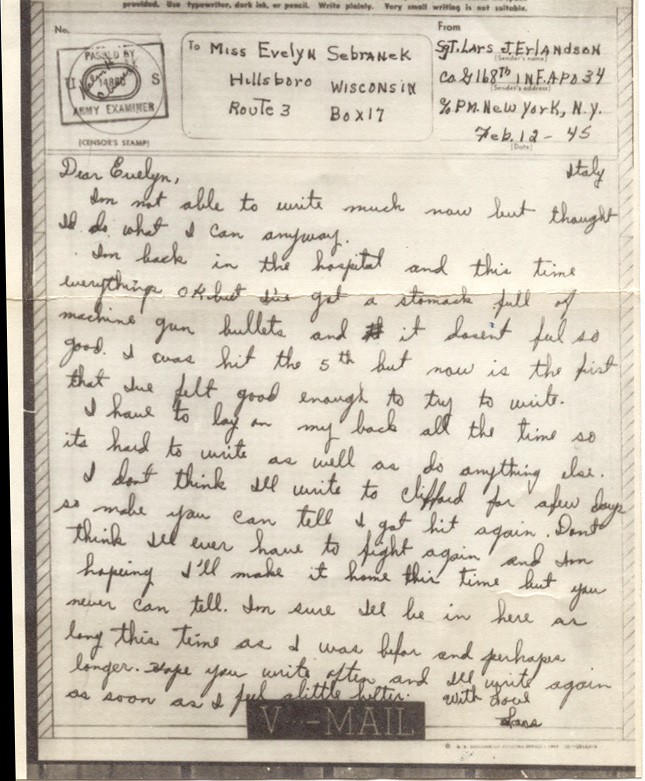 provided. Use typewriter, dark ink, or pencil. Write plainly. Very small writing is not suitable.
No.
PASSED BY
U S
ARMY EXAMINER
(CENSOR'S STAMP)
To Miss Evelyn Sebranek
Hillsboro Wisconsin
Route 3 Box 17
From
Sgt. Lars J. Erlandson
(Sender's name)
Co G 168th INF. APO 34
(Sender's address)
c/o PM. New York, N.Y.
Feb. 12 - 45
(Date)
Italy
Dear Evelyn,
Im not able to write much now but thought
Id do what I can anyway.
Im back in the hospital and this time
everythings OK but I've got a stomack full of
machine gun bullets and it dosen't feel so
good. I was hit the 5th but now is the first
that Ive felt good enough to try to write.
I have to lay on my back all the time so
its hard to write as well as do anything else.
I dont think Ill write to Clifford for afew days
so make you can tell I got hit again. Dont
think Ill ever have to fight again and Im
hopeing I'll make it home this time but you
never can tell. Im sure Ill be in here as
long this time as I was befor and perhaps
longer. Hope you write often and Ill write again
as soon as I feel alittle better. With Love
Lars
V···-MAIL